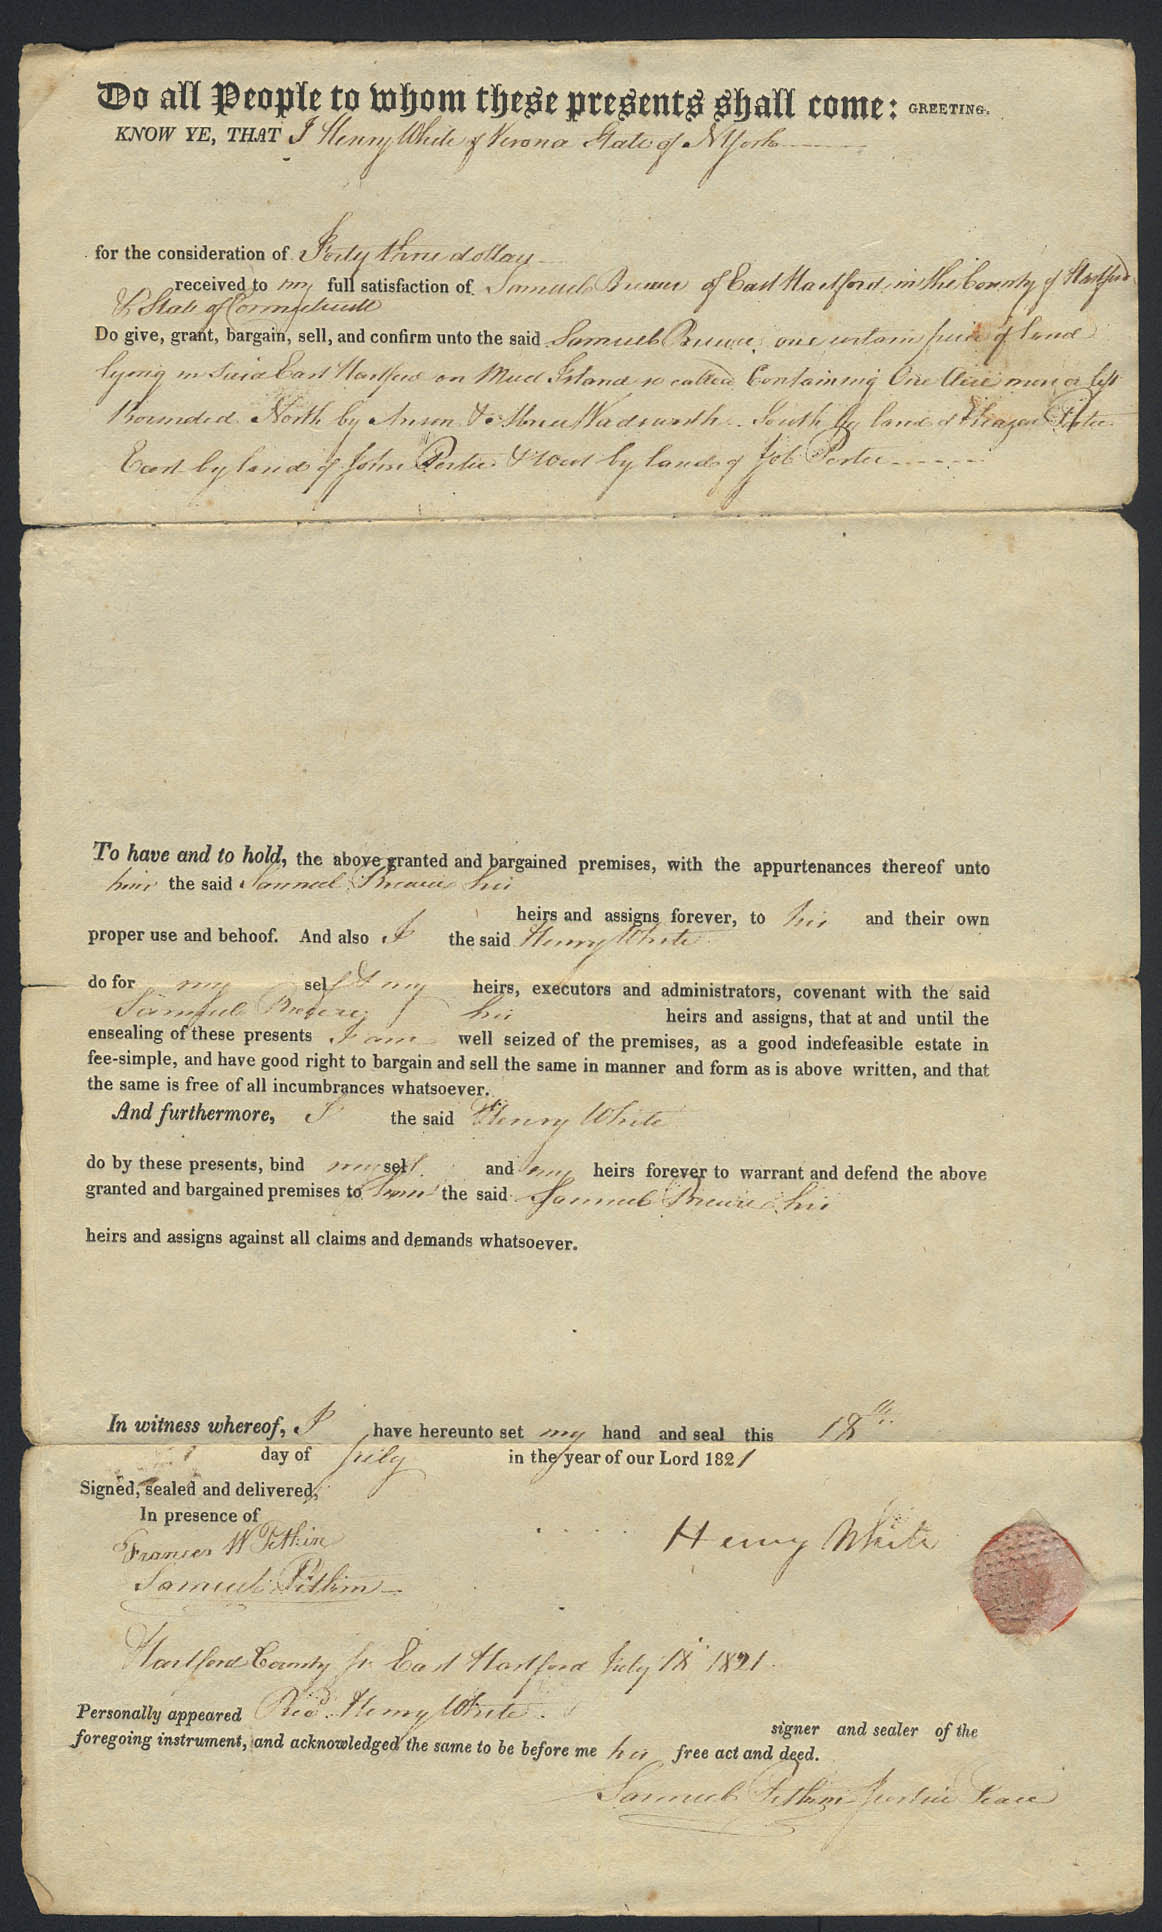 To all People to whom these presents shall come: GREETING.
KNOW YE, THAT I Henry White of Verona State of N York
for the consideration of Forty three dollars
received to my full satisfaction of Samuel Brewer of East Hartford in the County of Hartford
& State of Connecticutt
Do give, grant, bargain, sell, and confirm unto the said Samuel Brewer one certain piece of land
lying in said East Hartford on Mud Island so called Containing One Acre more or less
Bounded North by Anson & Wadsworth South by land of Eleazer Porter
East by land of John Porter & West by land of Job Porter
To have and to hold, the above granted and bargained premises, with the appurtenances thereof unto
him the said Samuel Brewer his
heirs and assigns forever, to his and their own
proper use and behoof. And also I the said Henry White
do for my self & my heirs, executors and administrators, covenant with the said
Samuel Brewer his heirs and assigns, that at and until the
ensealing of these presents I am well seized of the premises, as a good indefeasible estate in
fee-simple, and have good right to bargain and sell the same in manner and form as is above written, and that
the same is free of all incumbrances whatsoever.
And furthermore, I the said Henry White
do by these presents, bind my self and my heirs forever to warrant and defend the above
granted and bargained premises to him the said Samuel Brewer his
heirs and assigns against all claims and demands whatsoever.
In witness whereof, I have hereunto set my hand and seal this 18th
day of July in the year of our Lord 1821
Signed, sealed and delivered,
In presence of
Frances W Pitkin
Henry White
Samuel Pitkin
Hartford County ss East Hartford July 18 1821
Personally appeared Red. Henry White
signer and sealer of the
foregoing instrument, and acknowledged the same to be before me his free act and deed.
Samuel Pitkin Justice Peace